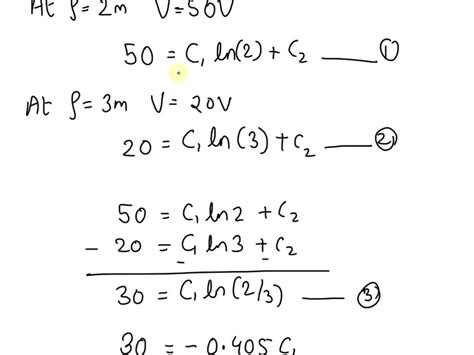 At ρ = 2m V = 50V
50 = C₁ ln(2) + C₂ —— ①
At ρ = 3m V = 20V
20 = C₁ ln(3) + C₂ —— ②
50 = C₁ ln2 + C₂
- 20 = C₁ ln3 + C₂
- -
30 = C₁ ln(2/3) —— ③
30 = - 0.405 C₁